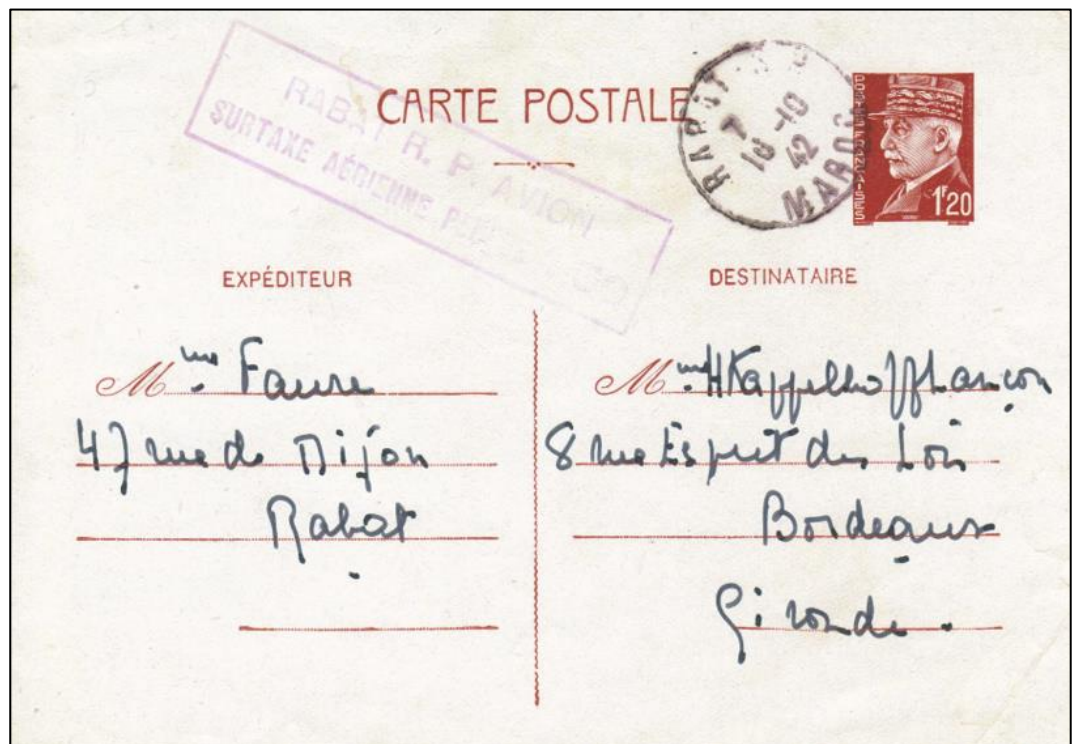 CARTE POSTALE
RABAT R. P. AVION
SURTAXE AÉRIENNE
RABAT R P
7
10-10
42
MAROC
POSTES FRANÇAISES
1F20
EXPÉDITEUR
Mme Faure
47 rue de Dijon
Rabat
DESTINATAIRE
Mme HKappelhoff Lançon
8 rue Esprit des Lois
Bordeaux
Gironde.